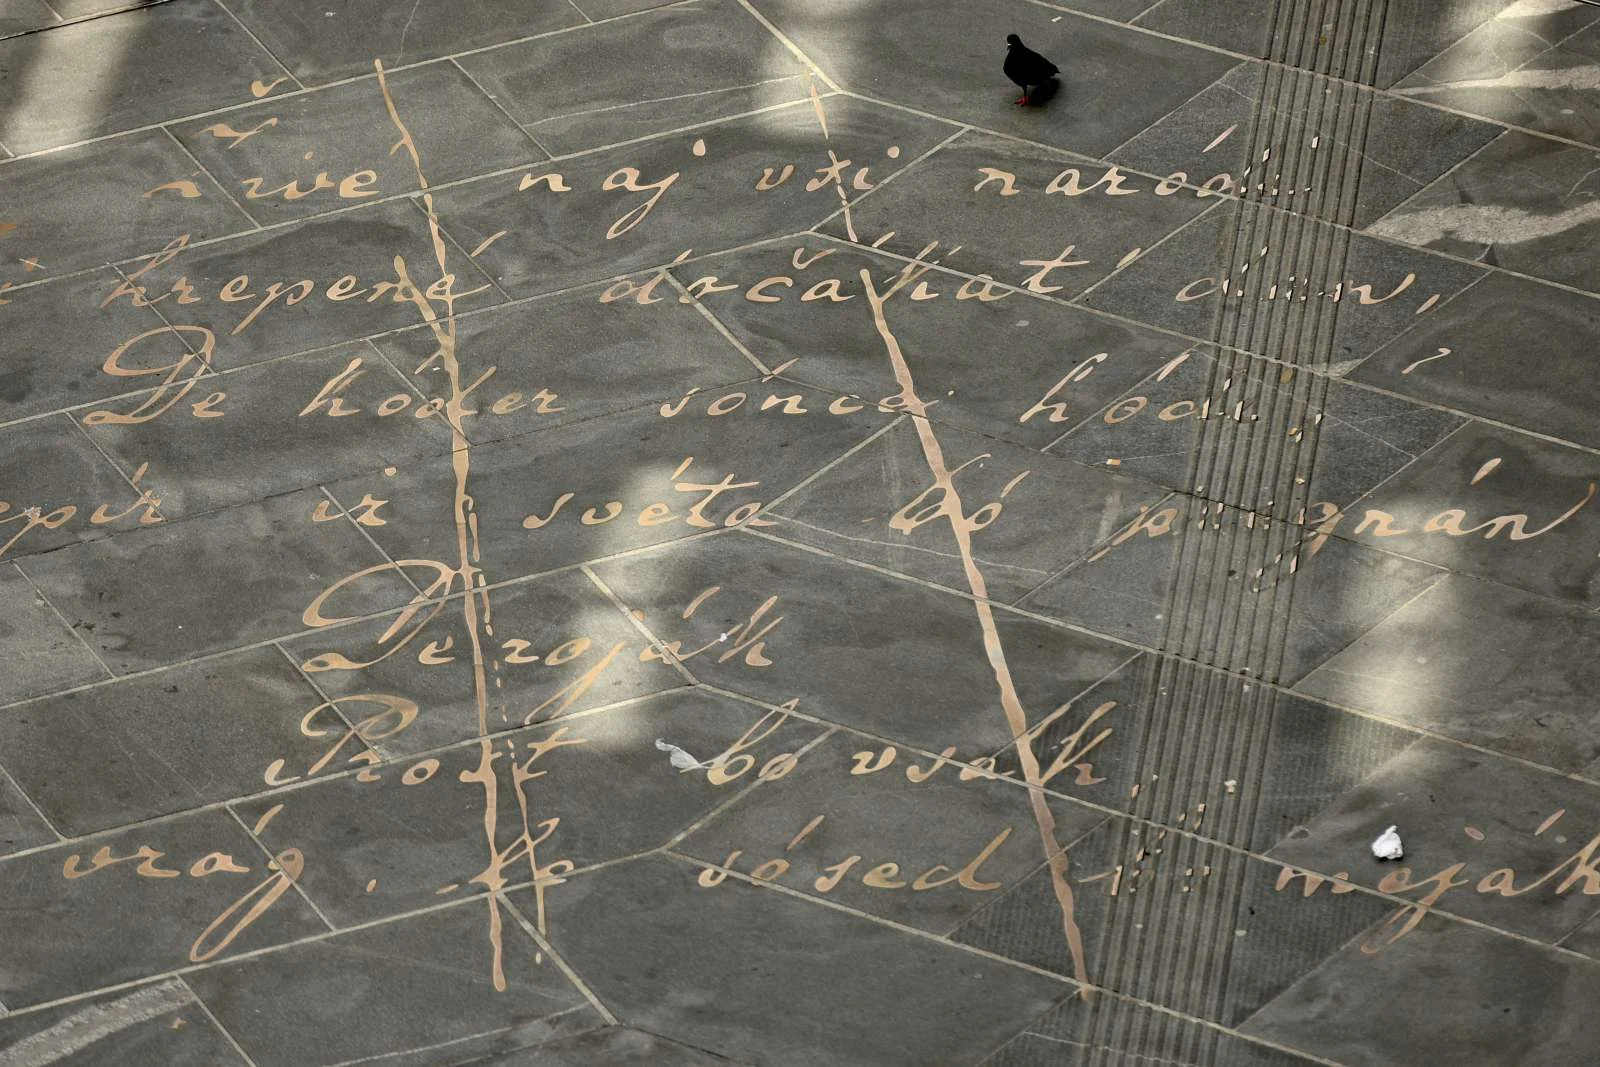 Žive naj vsi naród
hrepené dočákat' dan,
De kóder sónce hódi,
iz svéta bó pregnán
De roják
Prost bo vsak
vrág, le sósed bo meják